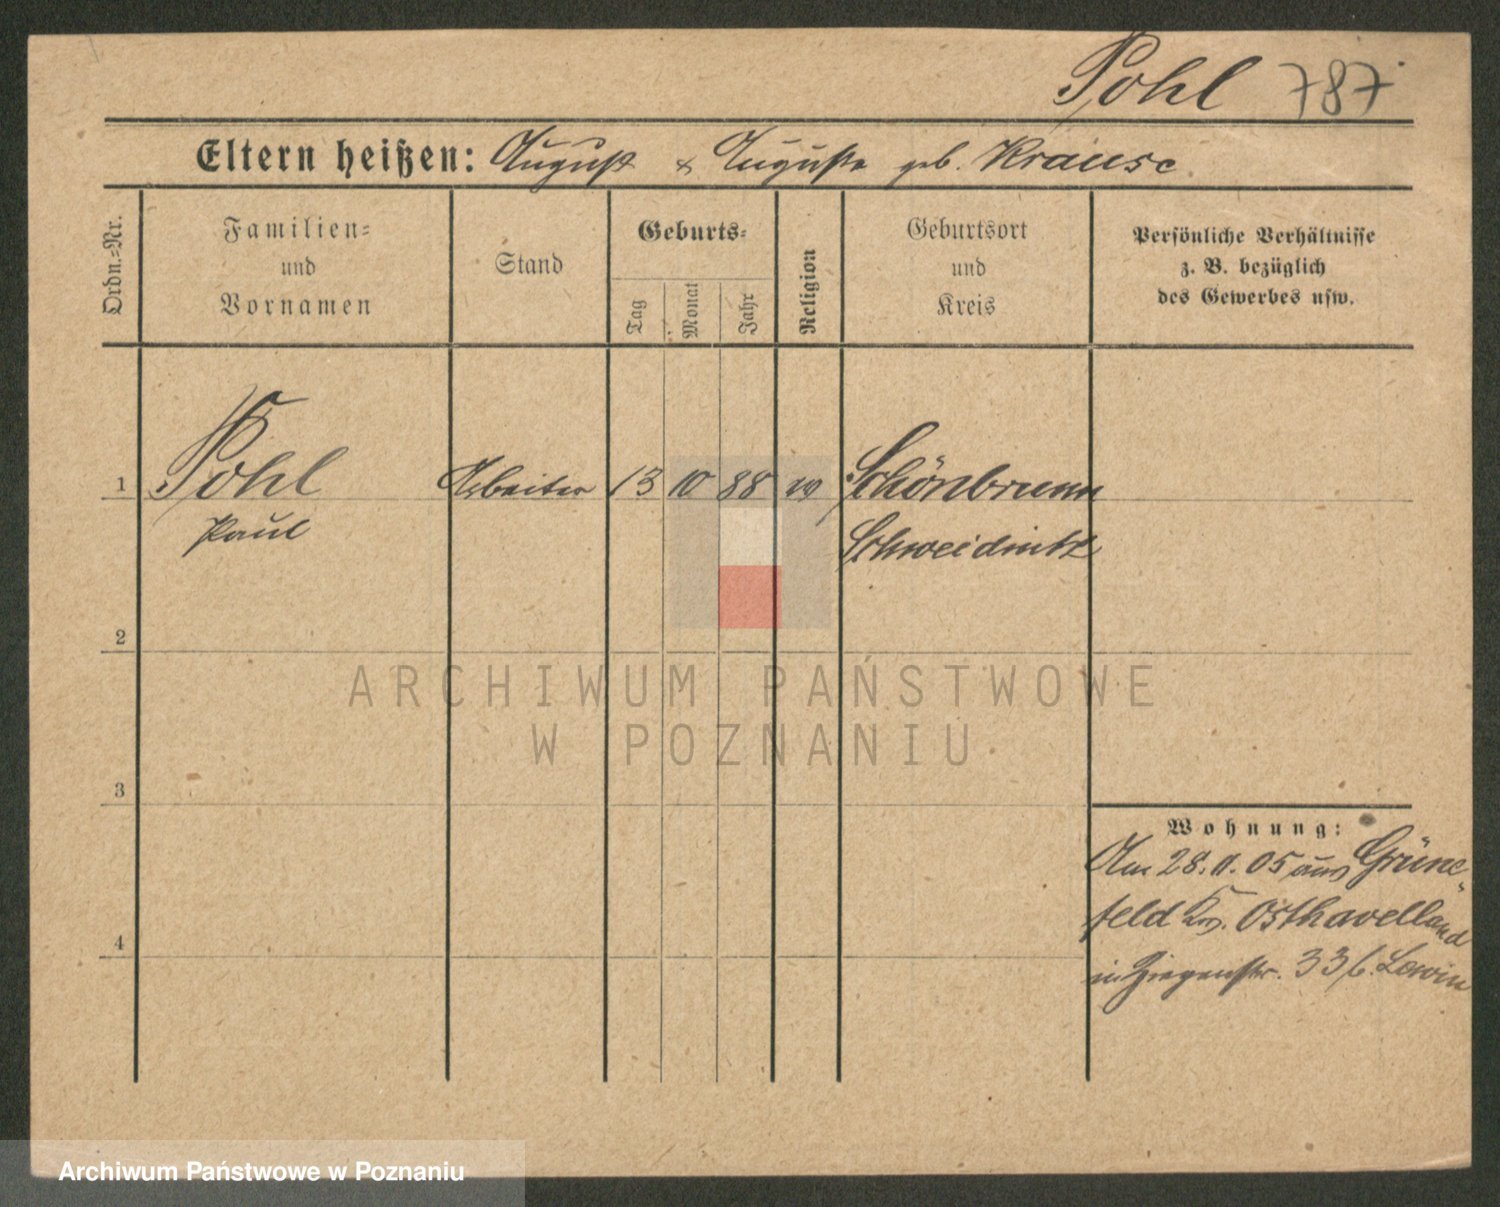 Pohl 787
Eltern heißen: August & Auguste geb. Krause
Ordn.-Nr.
Familien-
und
Vornamen
Stand
Geburts-
Tag
Monat
Jahr
Religion
Geburtsort
und
Kreis
Persönliche Verhältnisse
z. B. bezüglich
des Gewerbes usw.
1 Pohl Arbeiter 13 10 88 Schönbrunn
Paul Schweidnitz
2
ARCHIWUM PAŃSTWOWE
W POZNANIU
3
Wohnung:
Am 28. 11. 05 aus Grüne-
feld Krs. Osthavelland
in Ziegenstr. 33 b. Lewin
4
Archiwum Państwowe w Poznaniu